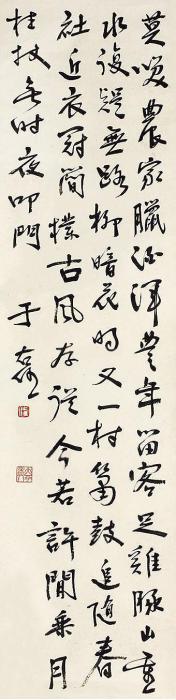 莫咲農家臘酒渾豐年留客足雞豚山重
水複疑無路柳暗花明又一村簫鼓追隨春
社近衣冠簡樸古風存從今若許閒乘月
拄杖無時夜叩門
于